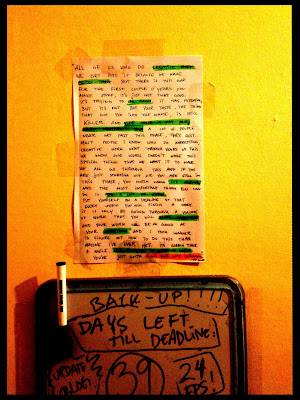 "ALL OF US WHO DO CREATIVE WORK
WE GET INTO IT BECAUSE WE HAVE
GOOD TASTE. BUT THERE IS THIS GAP.
FOR THE FIRST COUPLE YEARS YOU
MAKE STUFF, IT'S JUST NOT THAT GOOD.
IT'S TRYING TO BE GOOD, IT HAS POTENTIAL,
BUT IT'S NOT. BUT YOUR TASTE, THE THING
THAT GOT YOU INTO THE GAME, IS STILL
KILLER. AND YOUR TASTE IS WHY YOUR
A LOT OF PEOPLE
NEVER GET PAST THIS PHASE, THEY QUIT.
MOST PEOPLE I KNOW WHO DO INTERESTING,
CREATIVE WORK WENT THROUGH YEARS OF THIS
WE KNOW OUR WORK DOESN'T HAVE THIS
SPECIAL THING THAT WE WANT IT TO HAVE.
WE ALL GO THROUGH THIS. AND IF YOU
ARE JUST STARTING OUT OR YOU ARE STILL IN
THIS PHASE, YOU GOTTA KNOW
AND THE MOST IMPORTANT THING YOU CAN
DO IS DO A LOT OF WORK.
PUT YOURSELF ON A DEADLINE SO THAT
EVERY WEEK YOU WILL FINISH A
IT IS ONLY BY GOING THROUGH A VOLUME
OF WORK THAT YOU WILL
AND YOUR WORK WILL BE AS GOOD AS
YOUR AND I TOOK LONGER
TO FIGURE OUT HOW TO DO THIS THAN
ANYONE I'VE EVER MET. IT'S GONNA TAKE
A WHILE.
YOU'VE JUST GOTTA
BACK-UP!!!!
DAYS LEFT
TILL DEADLINE:
UPDATE
39
24
FPS!